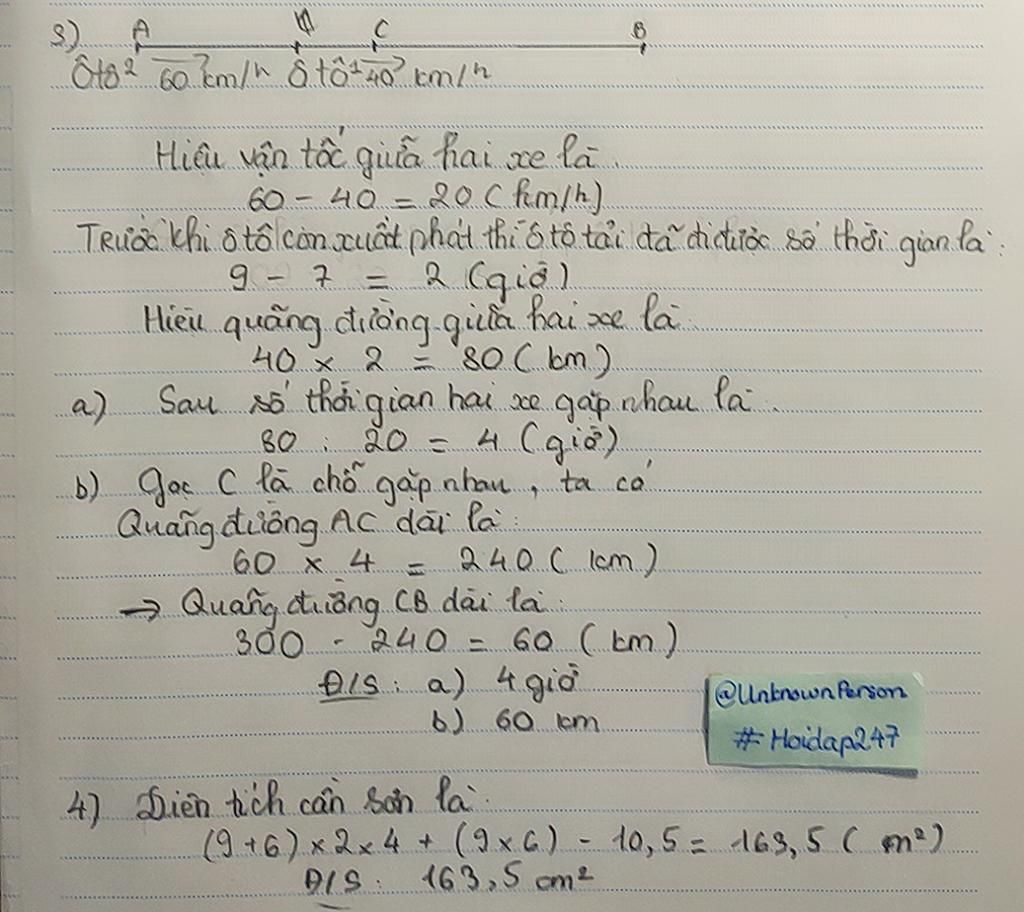 3) A C B
Ôtô2 60 km/h ôtô1 40 km/h
Hiệu vận tốc giữa hai xe là.
60 - 40 = 20 (km/h)
Trước khi ô tô con xuất phát thì ô tô tải đã đi được số thời gian là:
9 - 7 = 2 (giờ)
Hiệu quãng đường giữa hai xe là
40 x 2 = 80 (km)
a) Sau số thời gian hai xe gặp nhau là.
80 : 20 = 4 (giờ)
b) Gọc C là chỗ gặp nhau, ta có
Quãng đường AC dài là:
60 x 4 = 240 (km)
→ Quãng đường CB dài là:
300 - 240 = 60 (km)
Đ/S: a) 4 giờ
b) 60 km
@UnknownPerson
#Hoidap247
4) Diện tích cần sơn là:
(9+6)x2x4 + (9x6) - 10,5 = 163,5 (m²)
Đ/S: 163,5 cm²